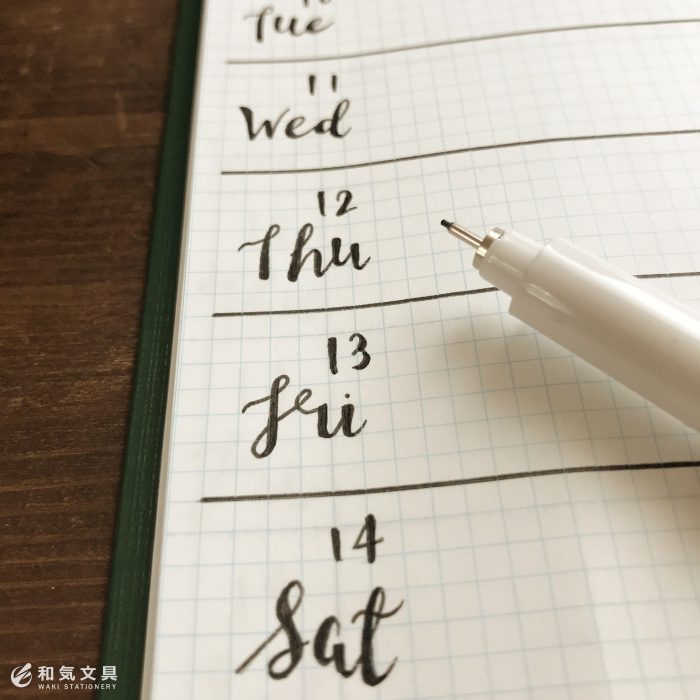 Tue
11
Wed
12
Thu
13
Fri
14
Sat
和気文具
WAKI STATIONERY